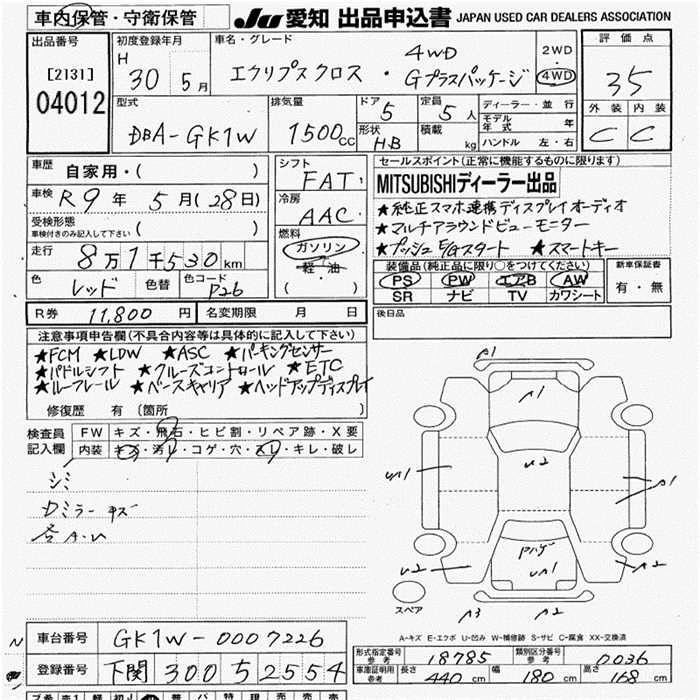 車内保管・守衛保管 JU 愛知 出品申込書 JAPAN USED CAR DEALERS ASSOCIATION
出品番号 初度登録年月 車名・グレード 評価点
[2131]
04012
H 30 年 5 月
エクリプスクロス ・ 4WD Gプラスパッケージ
2WD
4WD
35
外装 内装
C C
型式 排気量 ドア 定員 ディーラー・並行
DBA-GK1W 1500cc 5 5人
モデル年式 年
形状 積載
H・B kg ハンドル 左・右
車歴 自家用・( )
車検 R9年 5月(28日)
受検形態
車検付きのみ記入して下さい ( )
走行 8万1千530km
色 色替 色コード
レッド P26
R券 11,800円 名変期限 月 日
シフト
FAT
冷房
AAC
燃料
ガソリン
軽・油
( )
セールスポイント(正常に機能するものに限ります)
MITSUBISHIディーラー出品
★純正スマホ連携ディスプレイオーディオ
★マルチアラウンドビューモニター
★プッシュE/Gスタート ★スマートキー
装備品(純正品に限り○をつけてください) 新車保証書
PS PW エアB AW
SR ナビ TV カワシート
有・無
後日品
注意事項申告欄(不具合内容等は具体的に記入して下さい)
★FCM ★LDW ★ASC ★パーキングセンサー
★パドルシフト ★クルーズコントロール ★ETC
★ルーフレール ★ベースキャリア ★ヘッドアップディスプレイ
修復歴 有 〔箇所
検査員記入欄
FW キズ・飛石・ヒビ割・リペア跡・X要
内装 キズ・汚レ・コゲ・穴・スレ・キレ・破し
シミ
Dミラーキズ
各A・U
A1
A1
U2
UA1
A1
U2
A2
Pハゲ
UA1
A3
A2
スペア
A-キズ E-エクボ U-凹み W-補修跡 S-サビ C-腐食 XX-交換済
車台番号 GK1W-0007226
登録番号 下関 300 5 2554
形式指定番号 参考 18785 類別区分番号 参考 0036
車庫証明用 参考 長さ 440cm 幅 180cm 高さ 168cm